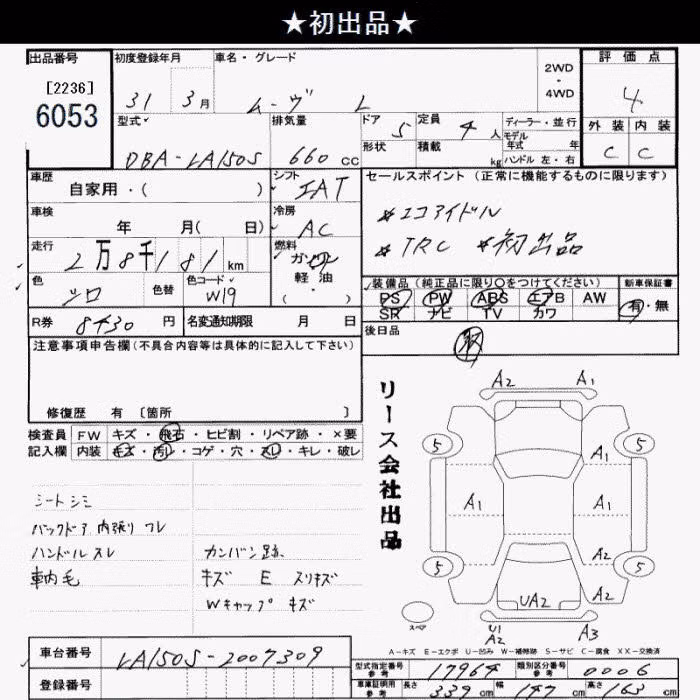 ★初出品★
出品番号 初度登録年月 車名・グレード 2WD・4WD 評価点
[2236]
6053 31 3月 ムーヴ L 4
型式 排気量 ドア 5 定員 4人 ディーラー・並行 外装 内装
形状 積載 kg モデル年式 年
ハンドル 左・右
DBA-LA150S 660cc C C
車歴 自家用・( ) シフト IAT セールスポイント (正常に機能するものに限ります)
車検 年 月( 日) 冷房 AC *エコアイドル
走行 2万8千181km 燃料 ガソリン *TRC *初出品
軽油・( )
色 シロ 色替 色コード W19
装備品(純正品に限り○をつけてください) 新車保証書
PS PW ABS エアB AW 有・無
SR ナビ TV カワ
R券 8430円 名変通知期限 月 日 後日品
注意事項申告欄(不具合内容等は具体的に記入して下さい)
修復歴 有 〔箇所 〕
検査員 FW キズ・飛石・ヒビ割・リペア跡・×要
記入欄 内装 キズ・汚レ・コゲ・穴・スレ・キレ・破レ
シートシミ
バックドア内張り スレ
ハンドルスレ カンバン跡
車内毛 キズ E スリキズ
Wキャップ キズ
リース会社出品
A2 A1
5 5
A1 A1
A2
5 5
UA2 A2
スペア U1 A2 A3
A-キズ E-エクボ U-凹み W-補修跡 S-サビ C-腐食 XX-交換済
車台番号 LA150S-2007309
登録番号
型式指定番号 参考 17964 類別区分番号 参考 0006
車庫証明用 参考 長さ 339cm 幅 147cm 高さ 163cm